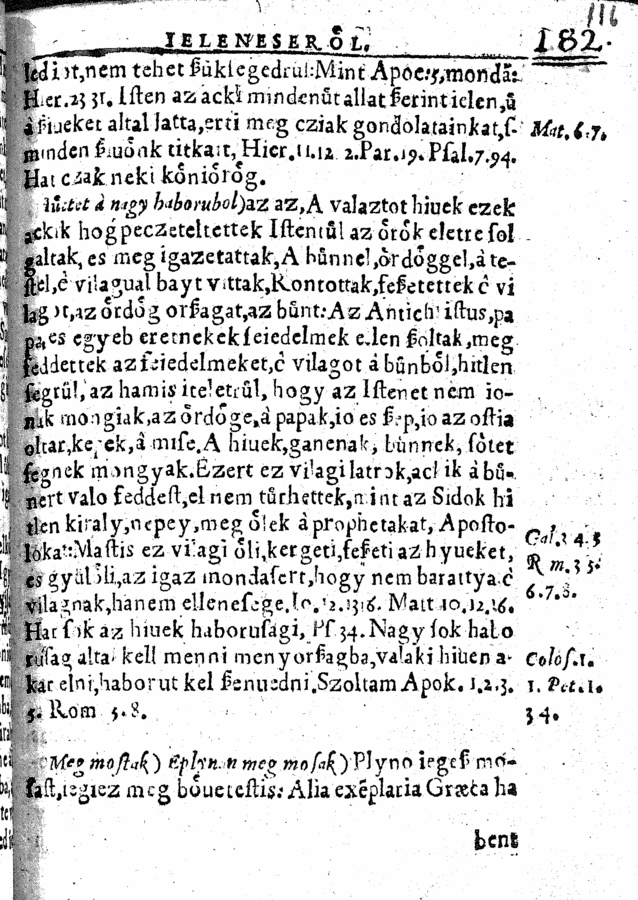 116
IELENESEROͤL. 182.
ledi ot,nem tehet ßuklegedrul:Mint Apoc:5,mondá:
Hier.23 31. Iſten az acki mindenuͤt allat ßerint ielen,uͤ
à ßiueket altal latta,erti meg cziak gondolatainkat,ſ-
minden ßiuoͤnk titkait, Hier.11.12 2.Par.19. Pſal.7.94.
Hat czak neki koͤnioͤroͤg.
à nagy haborubol)az az,A valaztot hiuek ezek
ackik hog peczeteltettek Iſtentuͤl az oͤroͤk eletre ſol
galtak, es meg igazetattak,A buͤnnel,oͤrdoͤggel,à te-
ſtel,é vilagual bayt vittak,Rontottak,feßetettek é vi
lagot,az oͤrdoͤg orßagat,az buͤnt:Az Antichriſtus,pa
pa,es egyeb eretnekek feiedelmek ellen ßoltak,meg
feddettek az feiedelmeket,é vilagot à buͤnboͤl,hitlen
ſegruͤl, az hamis iteletruͤl, hogy az Iſtenet nem io-
nak mongiak,az oͤrdoͤge,à papak,io es ßep,io az oſtia
oltar,kepek,à miſe.A hiuek,ganenak, buͤnnek, ſoͤtet
ſegnek mongyak.Ezert ez vilagi latrok,ackik à buͤ-
nert valo feddeſt,el nem tuͤrhettek,mint az Sidok hi
tlen kiraly,nepey,meg oͤlek à prophetakat, Apoſto-
lokat:Maſtis ez vilagi oͤli,kergeti,feßeti az hyueket,
es gyuͤloͤli,az igaz mondaſert,hogy nem barattya é
vilagnak,hanem ellenеſege.Io.12.1316. Matt 10.12.16.
Hat ſok az hiuek haboruſagi, Pſ 34. Nagy ſok habo
ruſag altal kell menni menyorßagba,valaki hiuen a-
kar elni,haborut kel ßenuedni.Szoltam Apok. 1.2.3.
5. Rom 5.8.
Meg moſtak) Eplynan meg moſak)Plyno iegeß mo-
ſaſt,iegiez meg boͤueteſtis: Alia exẽplaria Græca ha
bent
Mat. 6.7.
Gal.3 4.5
Rom.3 5.
6.7.8.
Colos.1.
1. Pet.1.
34.